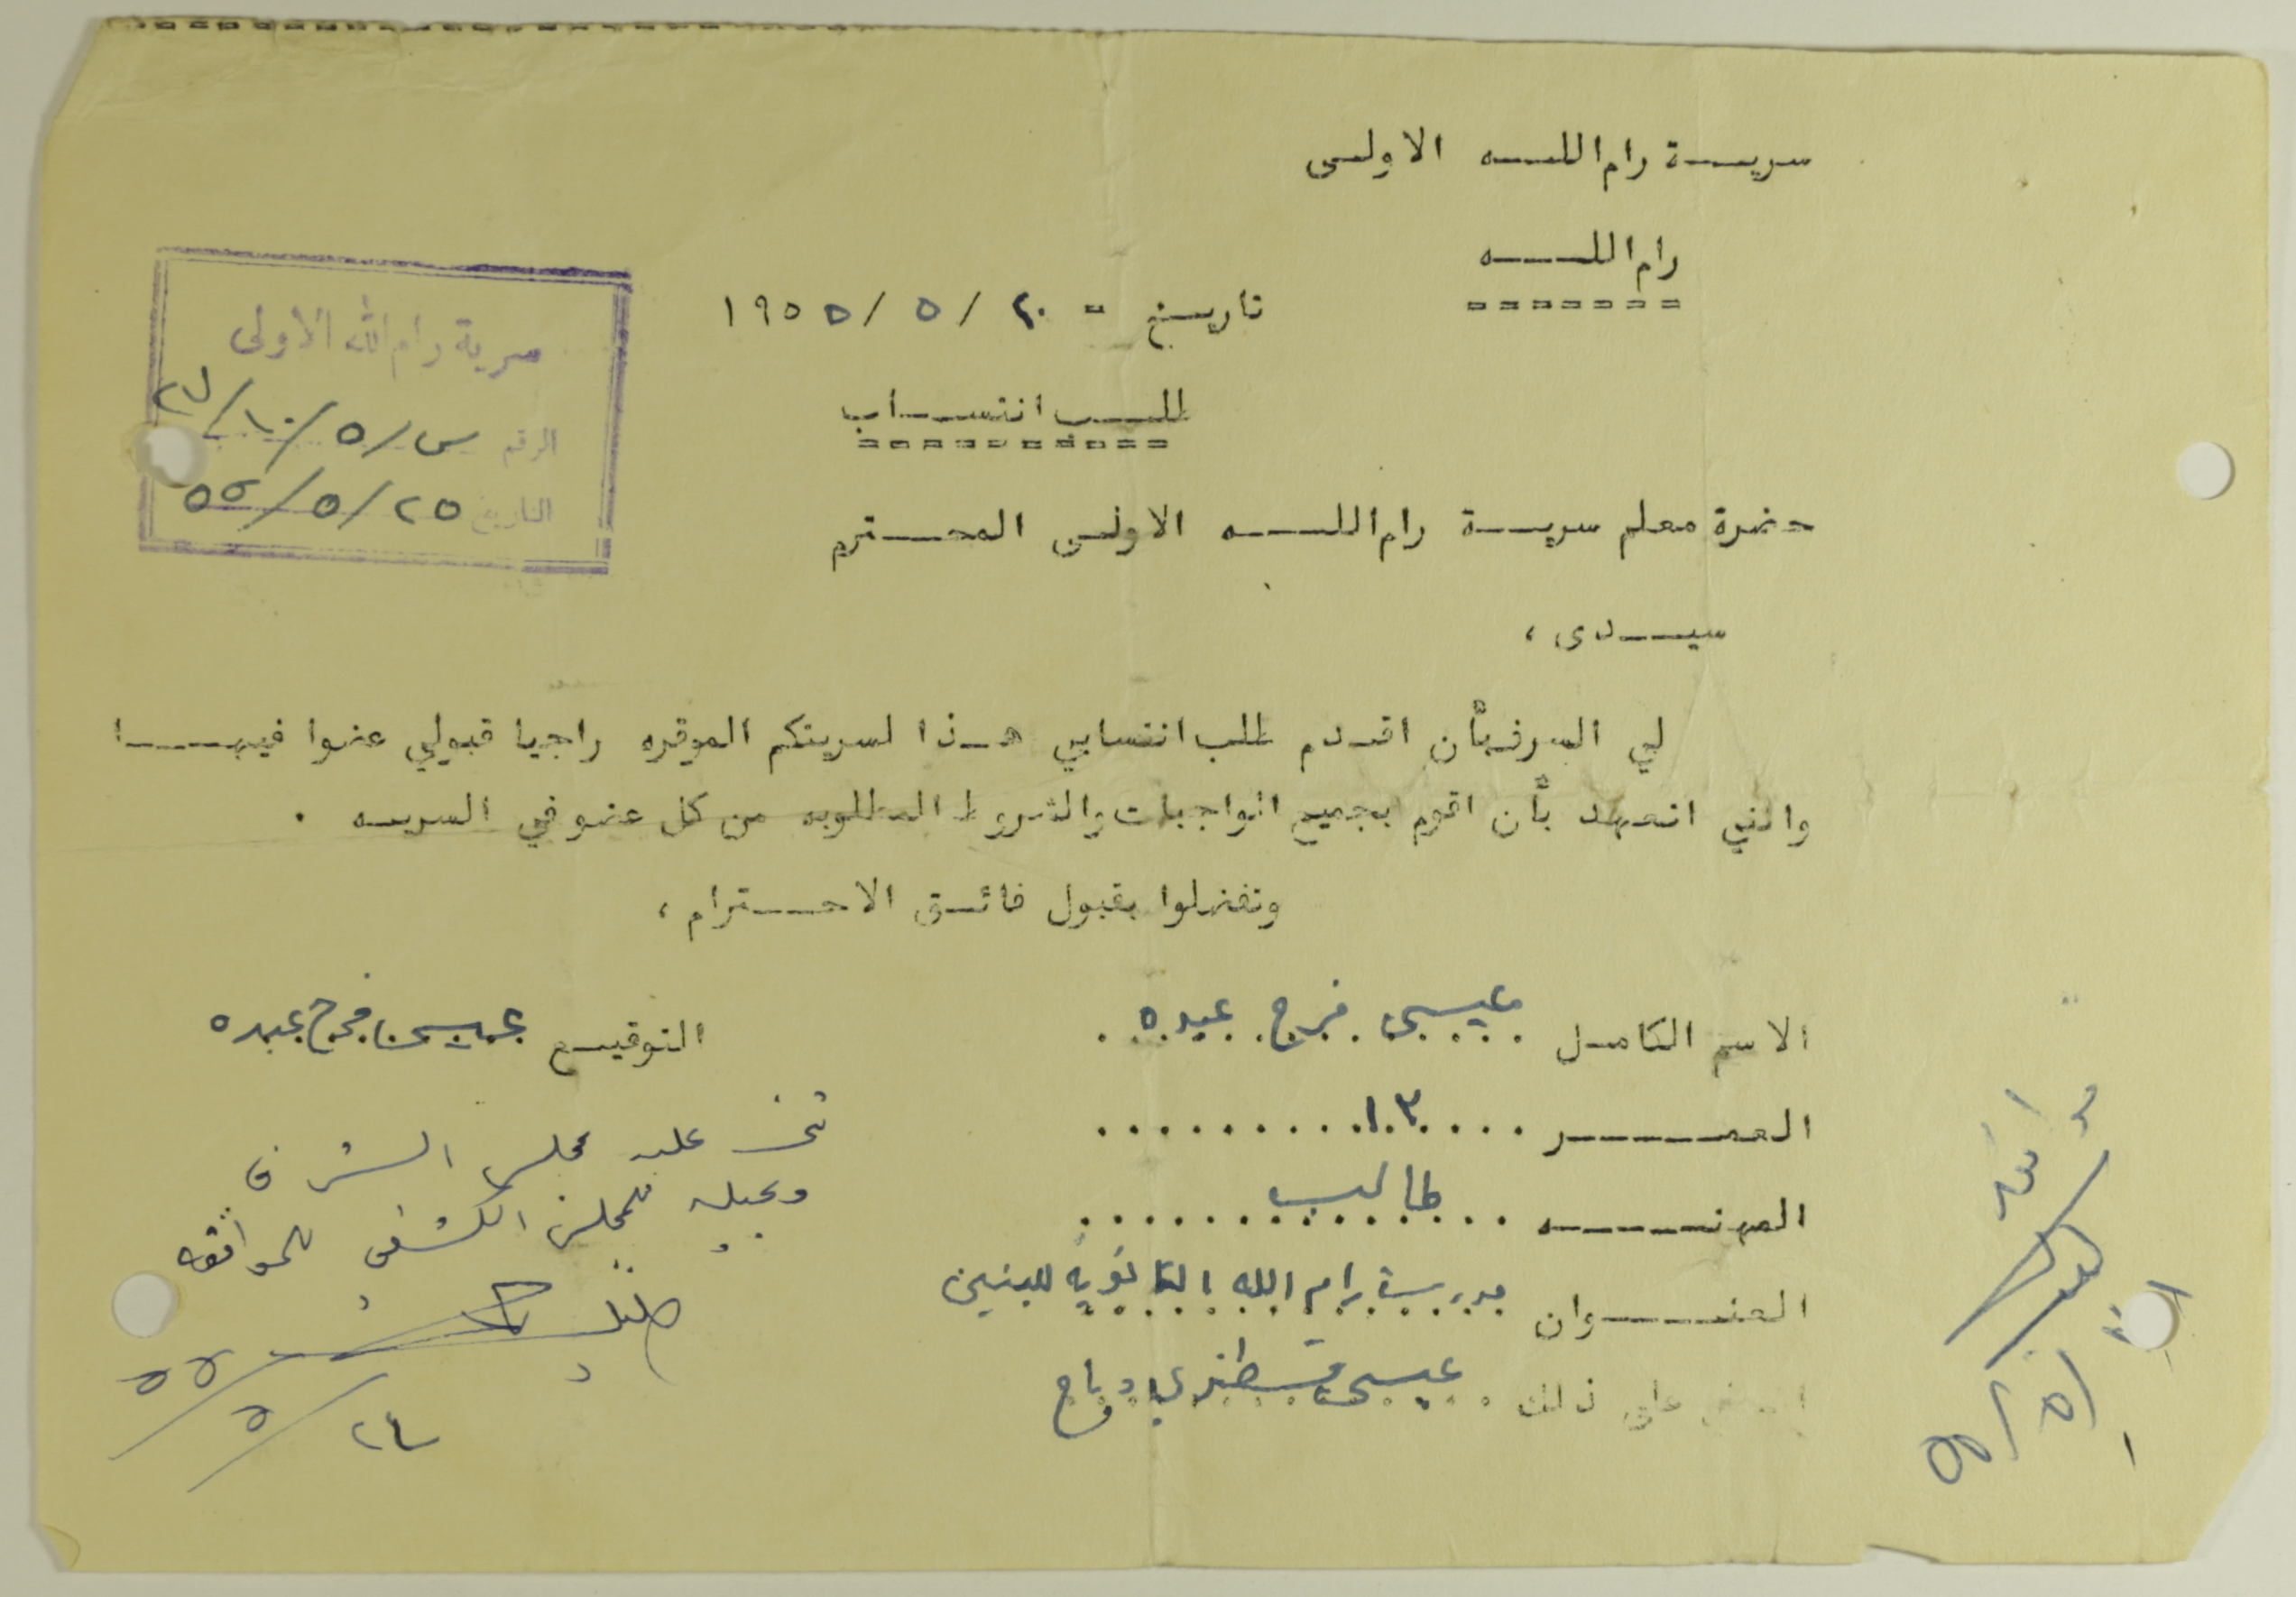 سرية رام الله الاولى
رام الله
تاريخ - ٢٠ / ٥ / ١٩٥٥
سرية رام الله الاولى
الرقم س/٥/١٠/
التاريخ ٢٥/٥/٥٥
طلب انتساب
حضرة معلم سرية رام الله الاولى المحترم
سيدى ،
لي الشرف بأن اقدم طلب انتسابي هذا لسريتكم الموقره راجيا قبولي عضوا فيها
وانني اتعهد بأن اقوم بجميع الواجبات والشروط المطلوبه من كل عضو في السريه .
وتفضلوا بقبول فائق الاحترام ،
الاسم الكامل عيسى فرج عبده
التوقيع عيسى فرج عبده
العمر ١٣
المهنه طالب
العنوان مدرسة رام الله الثانوية للبنين
على ذلك عيسى قسطندي
عليه مجلس الشرف
ويحيله للمجلس الكشفي للموافقه
٢٤/٥/٥٥